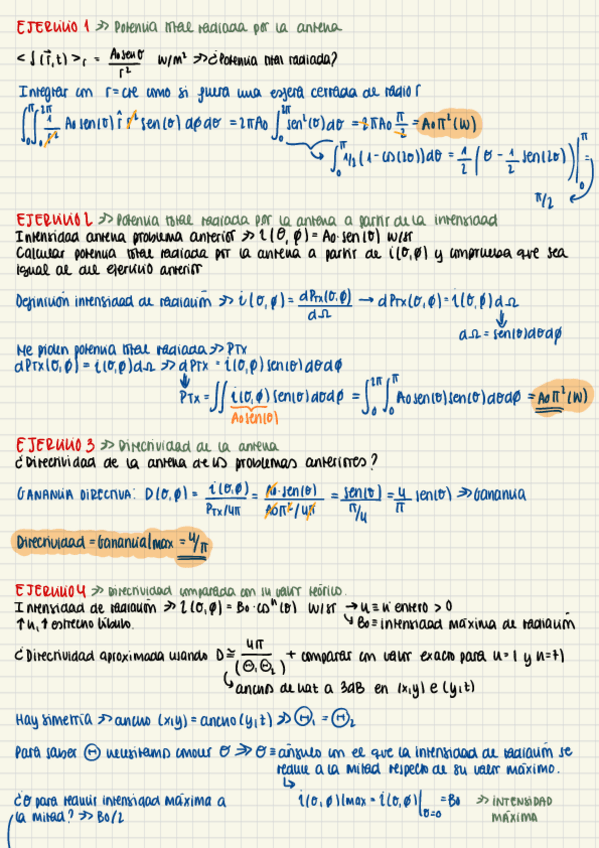 EJERCICIO 1 >> Potencia total radiada por la antena
<ʃ(r⃗,t)>r = A₀senθ / r² W/m² >> ¿Potencia total radiada?
Integrar con r=cte como si fuera una esfera cerrada de radio r
∫₀^π ∫₀^2π 1/r² A₀ sen(θ) r̂ r² sen(θ) dφdθ = 2πA₀ ∫₀^2π sen²(θ)dθ = 2πA₀ π/2 = A₀π² (W)
∫₀^π 1/2 (1-cos(2θ))dθ = 1/2 (θ - 1/2 sen(2θ)) |₀^π =
π/2
EJERCICIO 2 >> Potencia total radiada por la antena a partir de la intensidad
Intensidad antena problema anterior >> i(θ,φ) = A₀·sen(θ) W/sr
Calcular potencia total radiada por la antena a partir de i(θ,φ) y comprueba que sea
igual al del ejercicio anterior
Definición intensidad de radiación >> i(θ,φ) = dPTX(θ,φ) / dΩ → dPTX(θ,φ) = i(θ,φ)dΩ
dΩ = sen(θ)dθdφ
Me piden potencia total radiada >> PTX
dPTX(θ,φ) = i(θ,φ)dΩ >> dPTX = i(θ,φ)sen(θ)dθdφ
PTX = ∫∫ i(θ,φ)sen(θ)dθdφ = ∫₀^2π ∫₀^π A₀sen(θ)sen(θ)dθdφ = A₀π² (W)
A₀sen(θ)
EJERCICIO 3 >> Directividad de la antena
¿Directividad de la antena de los problemas anteriores?
GANANCIA DIRECTIVA: D(θ,φ) = i(θ,φ) / PTX/4π = A₀·sen(θ) / A₀π²/4π = sen(θ) / π/4 = 4/π sen(θ) >> Ganancia
Directividad = Ganancia|max = 4/π
EJERCICIO 4 >> Directividad comparada con su valor teórico.
Intensidad de radiación >> i(θ,φ) = B₀·cosⁿ(θ) W/sr → n ≡ nº entero > 0
↑n, ↑ estrecho lóbulo. B₀ ≡ intensidad máxima de radiación
¿Directividad aproximada usando D ≅ 4π / (Θ₁Θ₂) + comparar con valor exacto para n=1 y n=7)
ancho de haz a 3dB en (x,y) e (y,z)
Hay simetría >> ancho (x,y) = ancho (y,z) >> Θ₁ = Θ₂
Para saber Θ necesitamos conocer θ >> θ ≡ ángulo con el que la intensidad de radiación se
reduce a la mitad respecto de su valor máximo.
¿θ para reducir intensidad máxima a
la mitad? >> B₀/2
i(θ,φ)|max = i(θ,φ)|θ=0 = B₀ >> INTENSIDAD
MÁXIMA